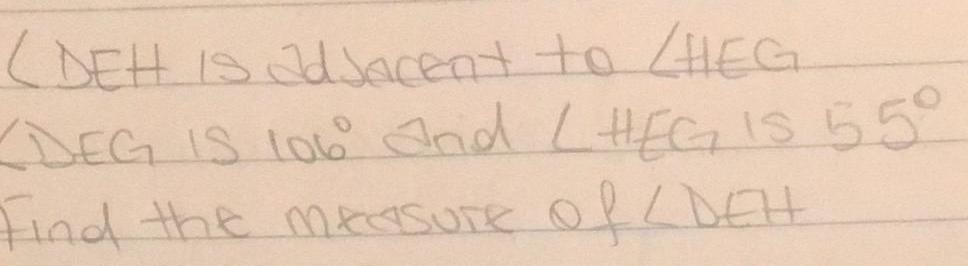 ∠DEH is adjacent to ∠HEG
∠DEG is 106° and ∠HEG is 55°
Find the measure of ∠DEH